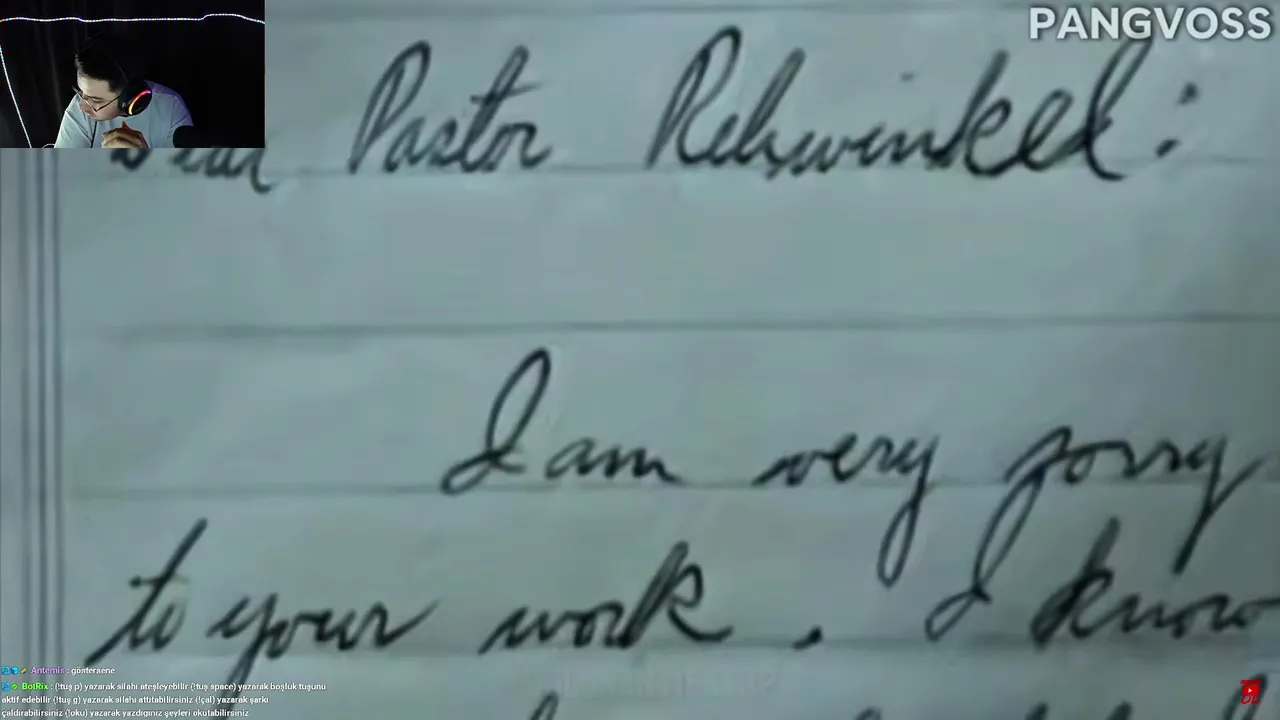 PANGVOSS
Dear Pastor Rehwinkel:
I am very sorry
to your work. I know
Antemis : göstersene
BotRix : (!tuş p) yazarak silahı ateşleyebilir (!tuş space) yazarak boşluk tuşunu
aktif edebilir (!tuş g) yazarak silahı attıtabilirsiniz (!çal) yazarak şarkı
çaldırabilirsiniz (!oku) yazarak yazdıgınız şeyleri okutabilirsiniz